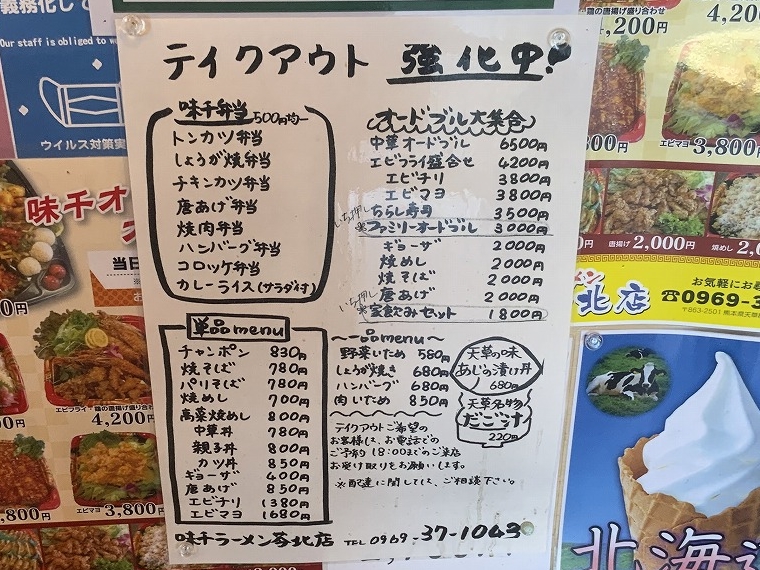 義務化して
Our staff is obliged to we
ウイルス対策実
味千オ
当日
エビフライ
鶏の唐揚げ盛り合わせ
エビマヨ 3,800円
テイクアウト 強化中!
味千弁当 500円均一
トンカツ弁当
しょうが焼弁当
チキンカツ弁当
唐あげ弁当
焼肉弁当
ハンバーグ弁当
コロッケ弁当
カレーライス(サラダ付)
オードブル大集合
中華オードブル 6500円
エビフライ盛合せ 4200円
エビチリ 3800円
エビマヨ 3800円
ちらし寿司 3500円
いち押し ※ファミリーオードブル 3000円
ギョーザ 2000円
焼めし 2000円
焼そば 2000円
唐あげ 2000円
いち押し ※家飲みセット 1800円
単品menu
チャンポン 830円
焼そば 780円
パリそば 780円
焼めし 700円
高菜焼めし 800円
中華丼 780円
親子丼 800円
カツ丼 850円
ギョーザ 400円
唐あげ 850円
エビチリ 1380円
エビマヨ 1680円
一品menu
野菜いため 580円
しょうが焼き 680円
ハンバーグ 680円
肉いため 850円
天草の味
あじの漬け丼
680円
天草名物
だご汁
220円
テイクアウトご希望の
お客様は、お電話での
ご予約 18:00までのご来店
お受け取りをお願いします。
※配達に関しては、ご相談下さい。
味千ラーメン苓北店 TEL 0969-37-1043
鶏の唐揚げ盛り合わせ
4,200円
4,20
エビマヨ 3,800円
唐揚げ 2,000円
焼めし 2,0
北店
お気軽にお
☎0969-3
〒863-2501 熊本県天草
北海道